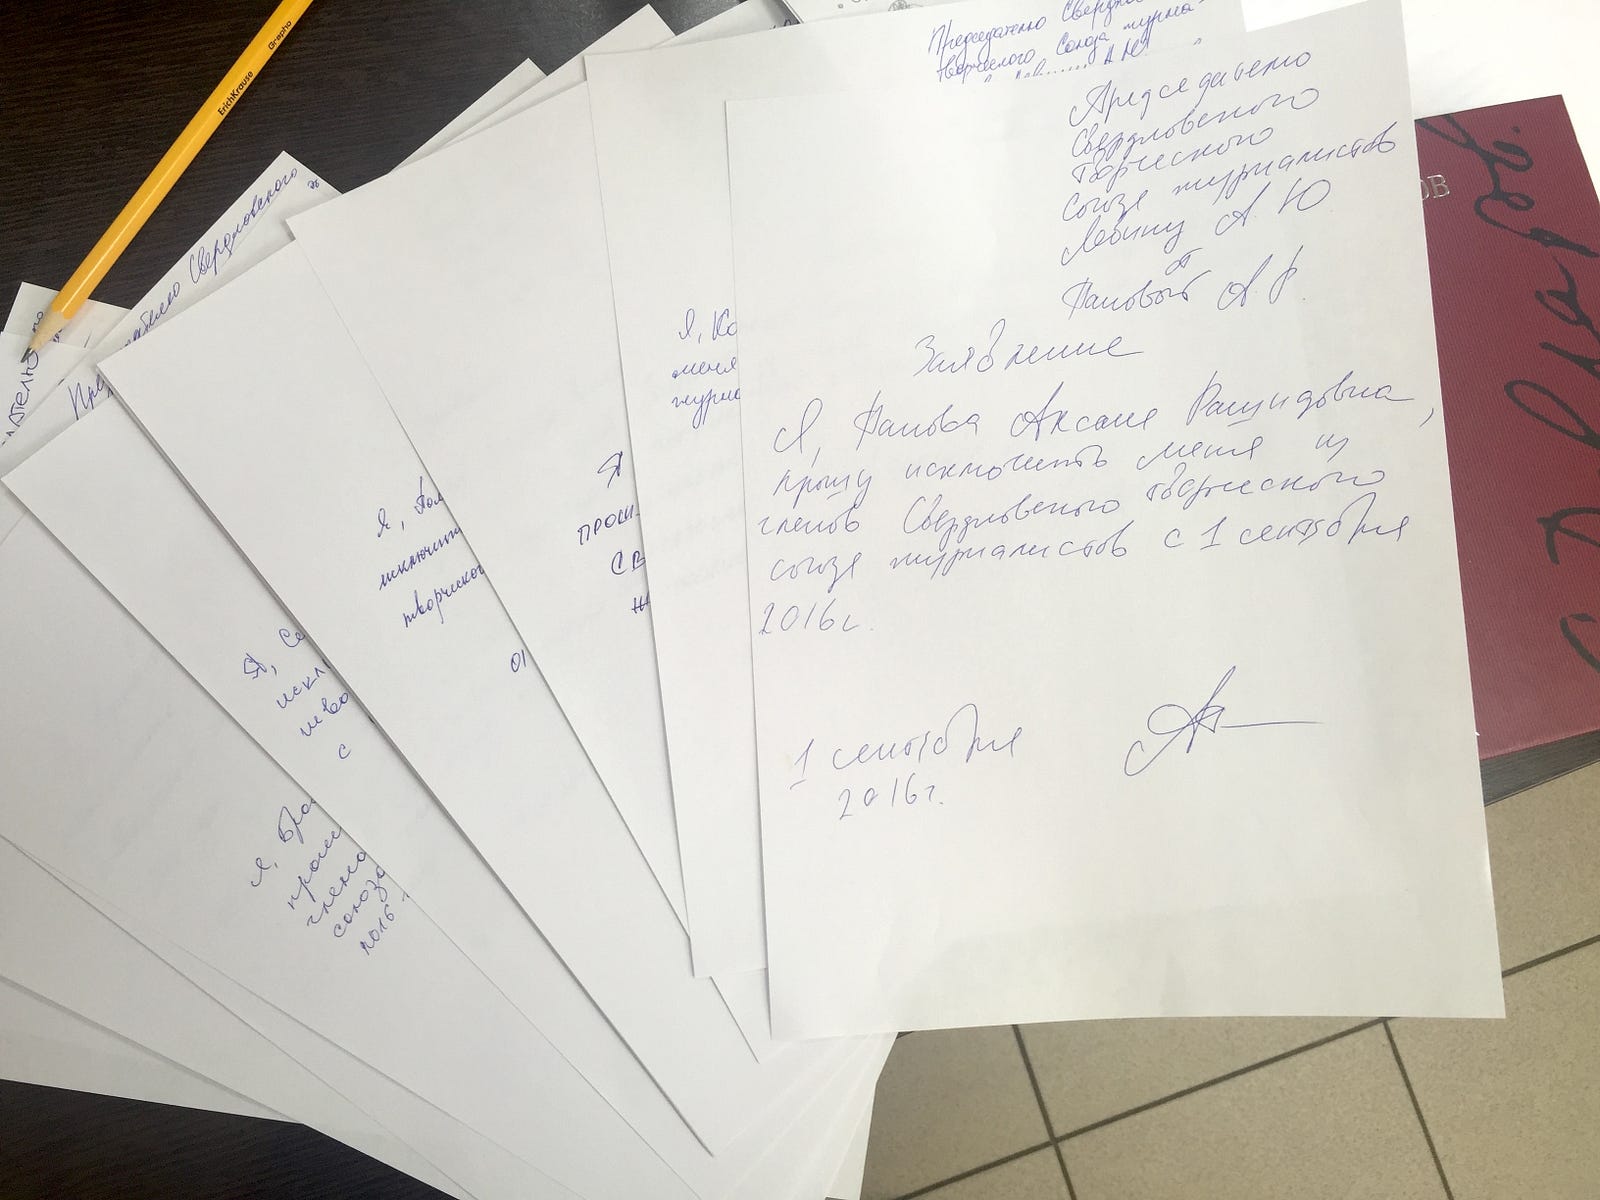 Grapho
ErichKrause
Председателю
творческого Союза журна-
Председателю
Свердловского
творческого
союза журналистов
Левину А Ю
от
Пановой А. Р.
Заявление
Я, Панова Аксана Рашидовна,
прошу исключить меня из
членов Свердловского творческого
союза журналистов с 1 сентября
2016г.
1 сентября
2016г.
Свердловского
Я, Ко
меня
журна
Я
ПРОШ
СВ
Я, Пол
исключить
творческог
01
Я, Се
искл
тво
с
Я, Бра
прошу
члено
союза
2016
ОВ